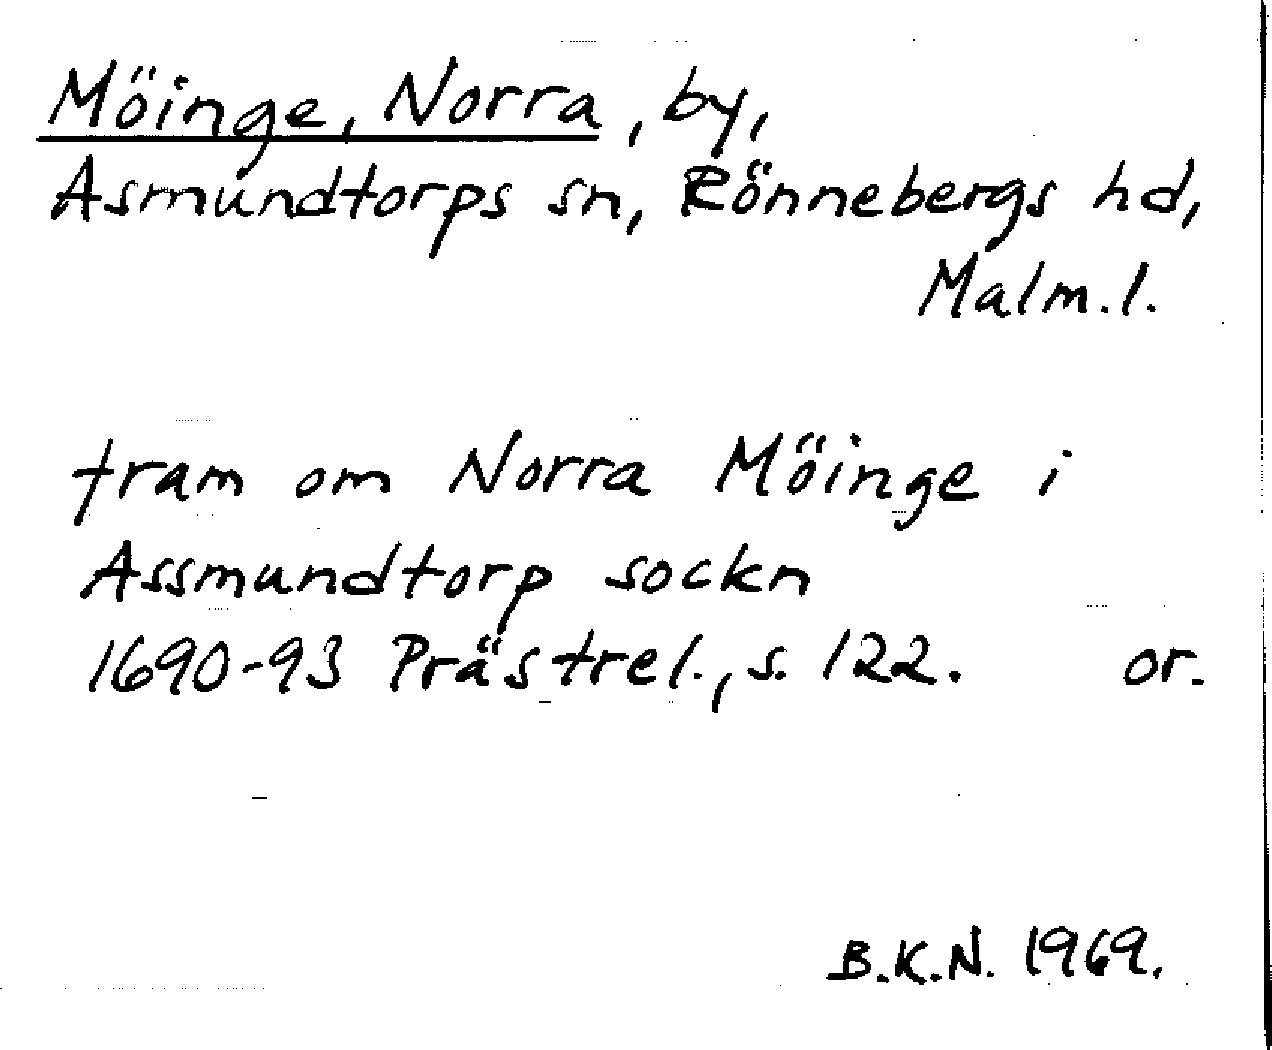 Möinge, Norra, by,
Asmundtorps sn, Rönnebergs hd,
Malm.l.
fram om Norra Möinge i
Assmundtorp sockn
1690-93 Prästrel., s. 122. or.
B.K.N. 1969.